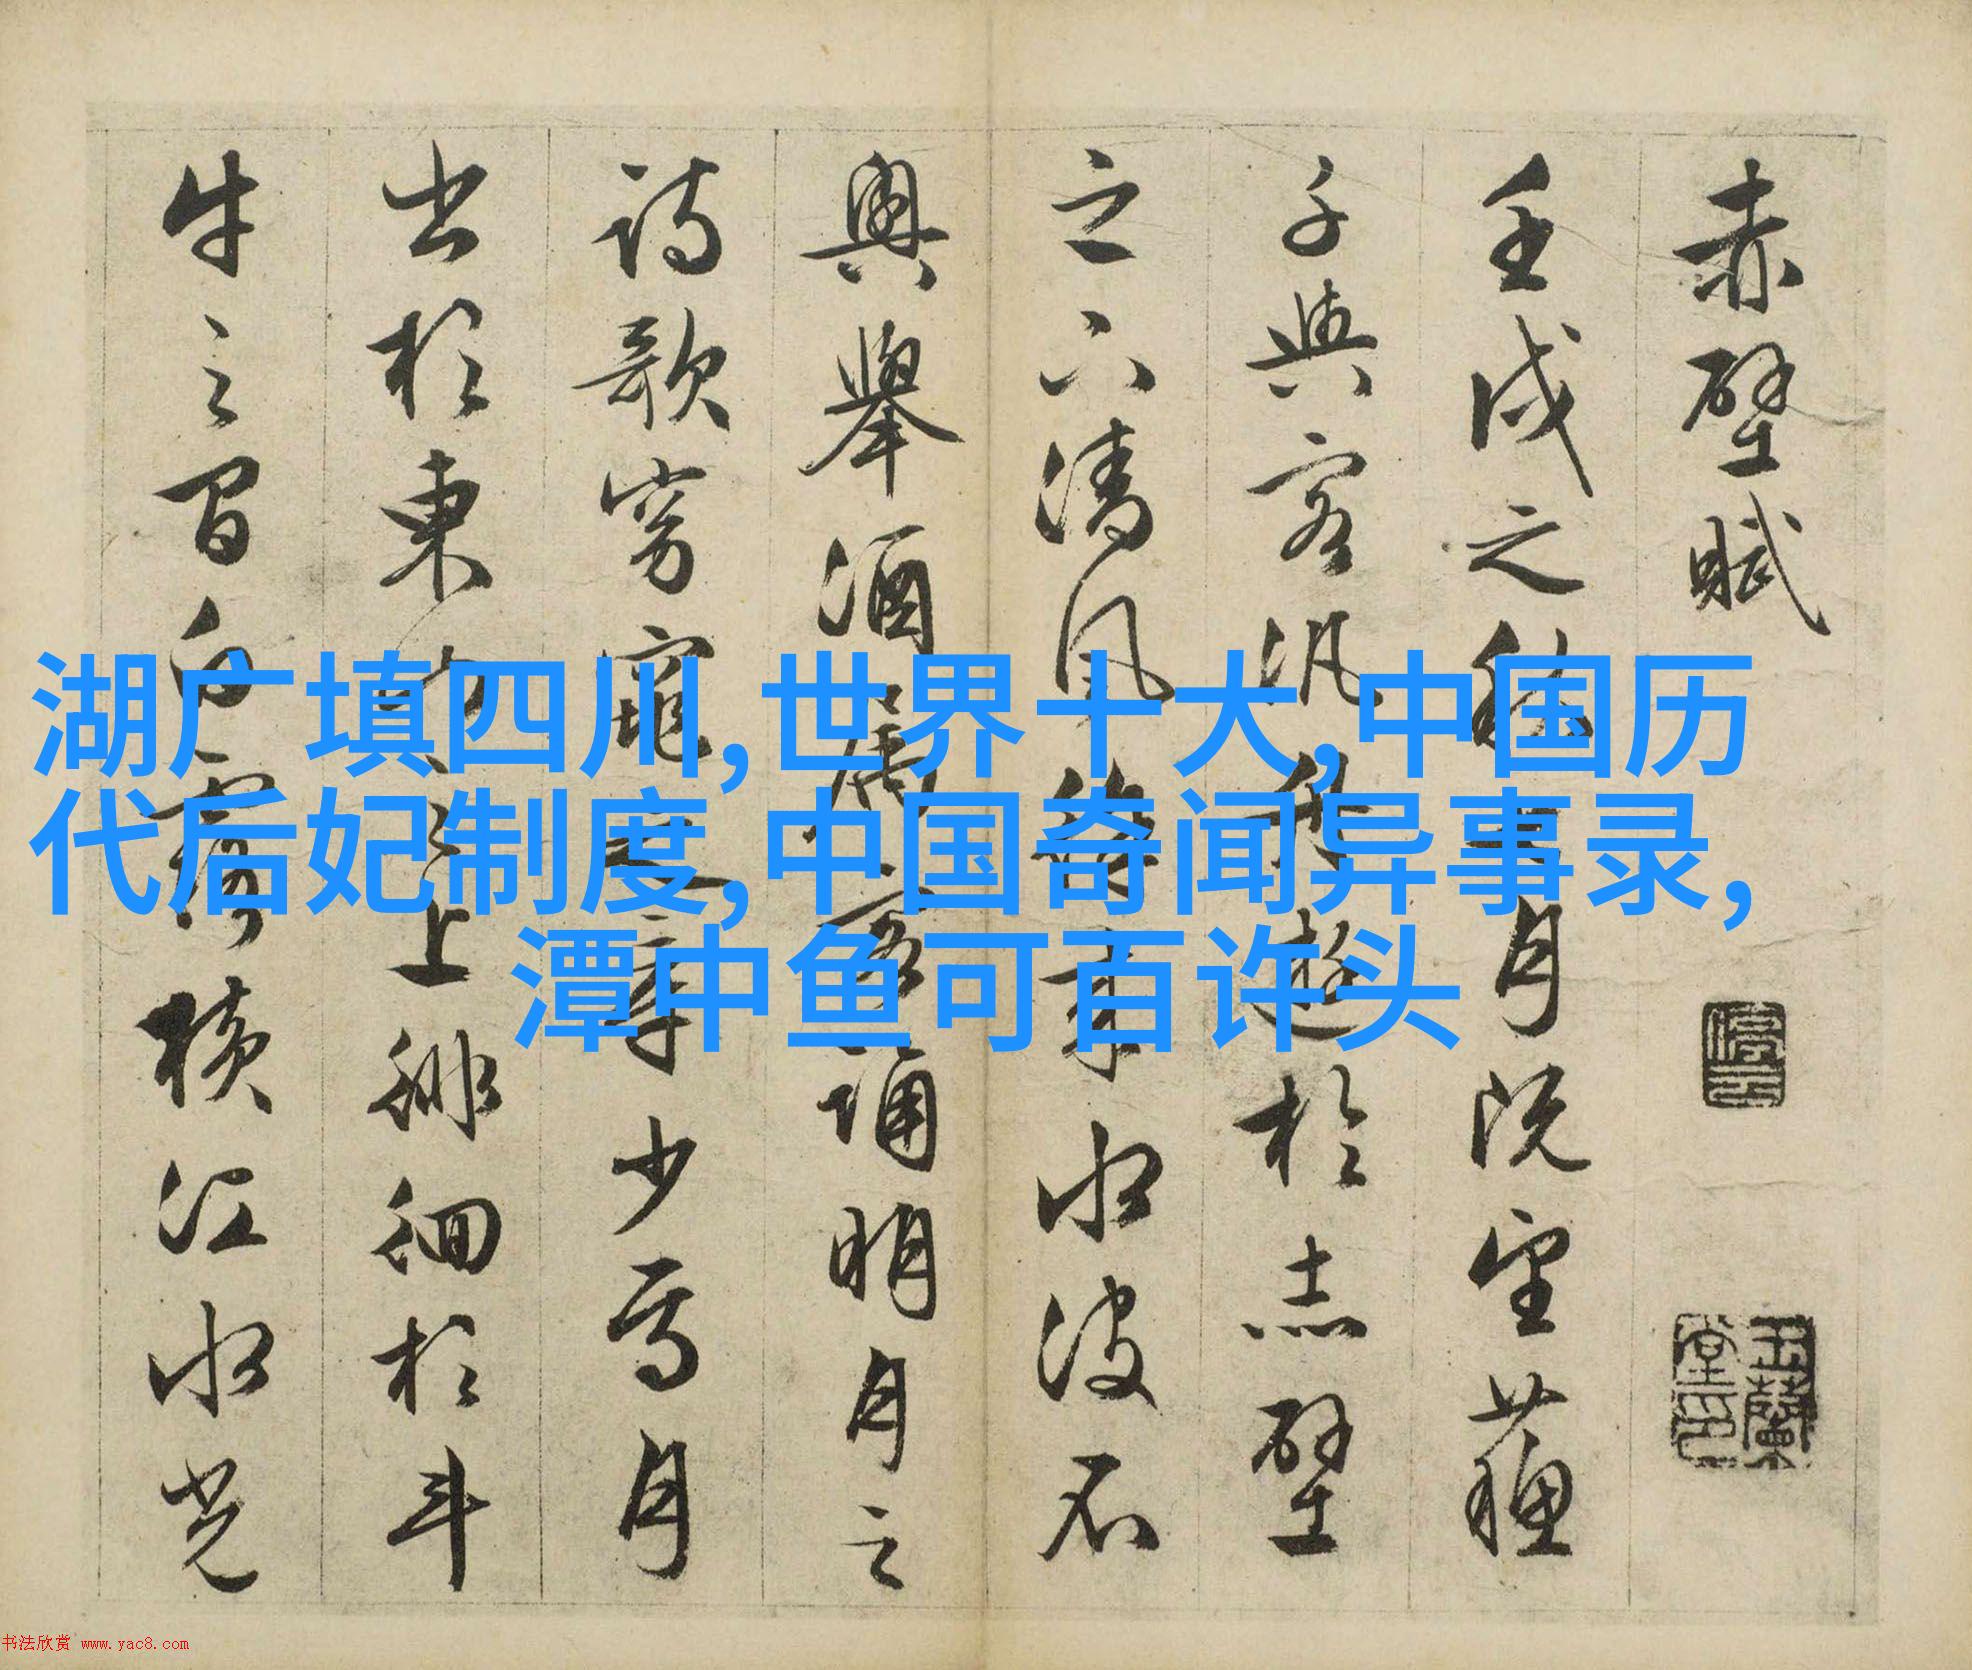 赤壁賦
壬戌之秋七月既望蘇
子與客汎舟遊於赤壁
之下清風徐來水波不
興舉酒屬客誦明月之
詩歌窈窕之章少焉月
出於東山之上徘徊於斗
牛之間白露橫江水光
停雲
玉蘭堂印
湖广填四川,世界十大,中国历
代后妃制度,中国奇闻异事录,
潭中鱼可百许头
书法欣赏 www.yac8.com